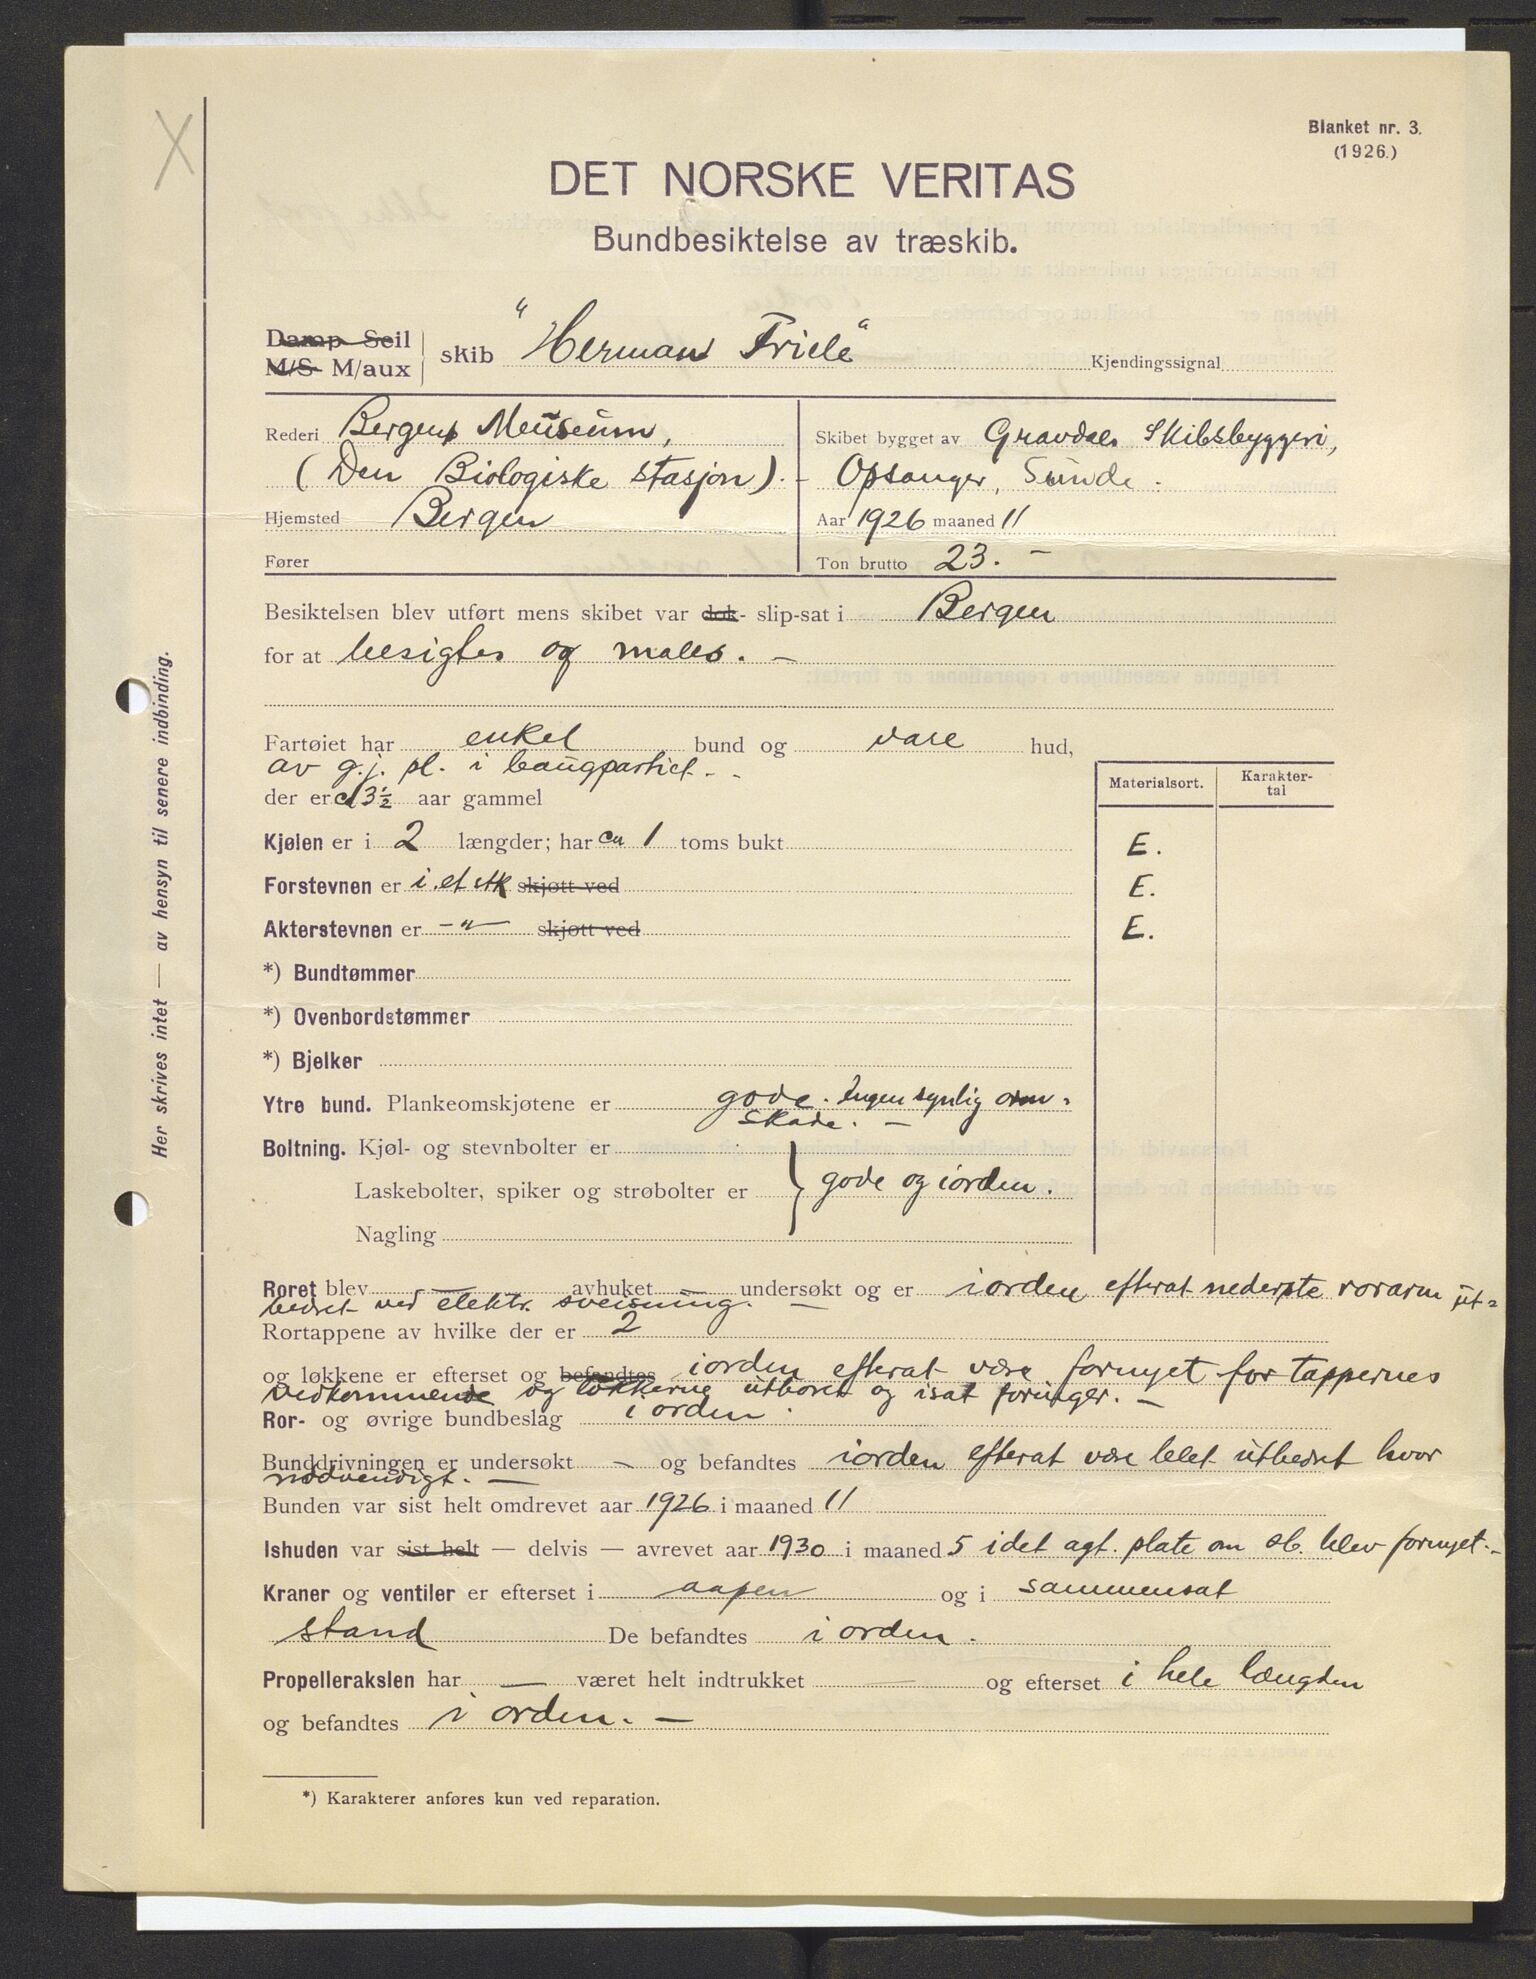 Blanket nr. 3.
(1926.)
DET NORSKE VERITAS
Bundbesiktelse av træskib.
Damp- Seil
M/S- M/aux
skib "Herman Friele" Kjendingssignal
Rederi Bergens Museum,
(Den Biologiske stasjon).-
Hjemsted Bergen
Fører
Skibet bygget av Gravdals Skibsbyggeri,
Opsanger, Sunde.
Aar 1926 maaned 11
Ton brutto 23. -
Besiktelsen blev utført mens skibet var dok- slip-sat i Bergen
for at besigtes og males. -
Fartøiet har enkel bund og vare hud,
av g.j. pl. i baugpartiet. -
der er 3½ aar gammel
Materialsort. Karakter-
tal
Kjølen er i 2 længder; har ca 1 toms bukt E.
Forstevnen er i et stk skjøtt ved E.
Akterstevnen er -"- skjøtt ved E.
*) Bundtømmer
*) Ovenbordstømmer
*) Bjelker
Ytre bund. Plankeomskjøtene er gode. Ingen synlig orm-
skade. -
Boltning. Kjøl- og stevnbolter er
Laskebolter, spiker og strøbolter er gode og iorden.
Nagling
Roret blev avhuket undersøkt og er iorden efterat nederste rorarm ut-
bedret ved elektr. sveisning. -
Rortappene av hvilke der er 2
og løkkene er efterset og befandtes iorden efterat være fornyet for tappernes
vedkommende og løkkerne utboret og isat foringer. -
Ror- og øvrige bundbeslag i orden.
Bunddrivningen er undersøkt - og befandtes iorden efterat være blet utbedret hvor
nødvendigt. -
Bunden var sist helt omdrevet aar 1926 i maaned 11
Ishuden var sist helt — delvis — avrevet aar 1930 i maaned 5 idet agt. plate om sb. blev fornyet. -
Kraner og ventiler er efterset i aapen og i sammensat
stand De befandtes i orden.
Propellerakslen har — været helt indtrukket — og efterset i hele længden
og befandtes i orden. -
*) Karakterer anføres kun ved reparation.
Her skrives intet — av hensyn til senere indbinding.